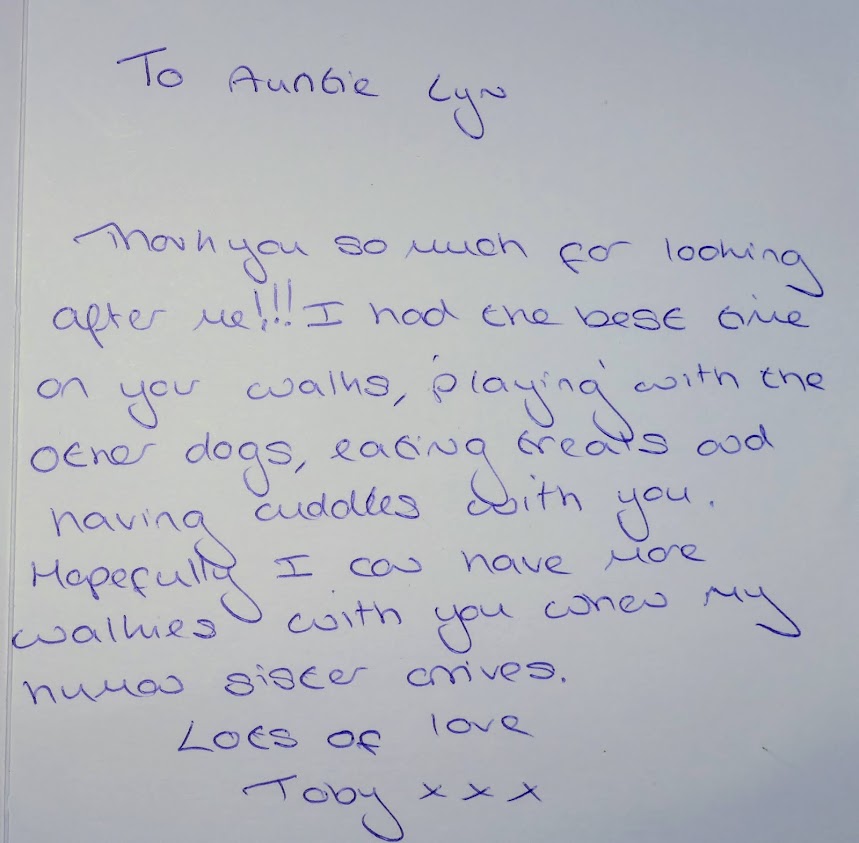 To Auntie Lyn
Thank you so much for looking
after me!!! I had the best time
on your walks, 'playing' with the
other dogs, eating treats and
having cuddles with you.
Hopefully I can have more
walkies with you when my
human sister arrives.
Lots of love
Toby xxx